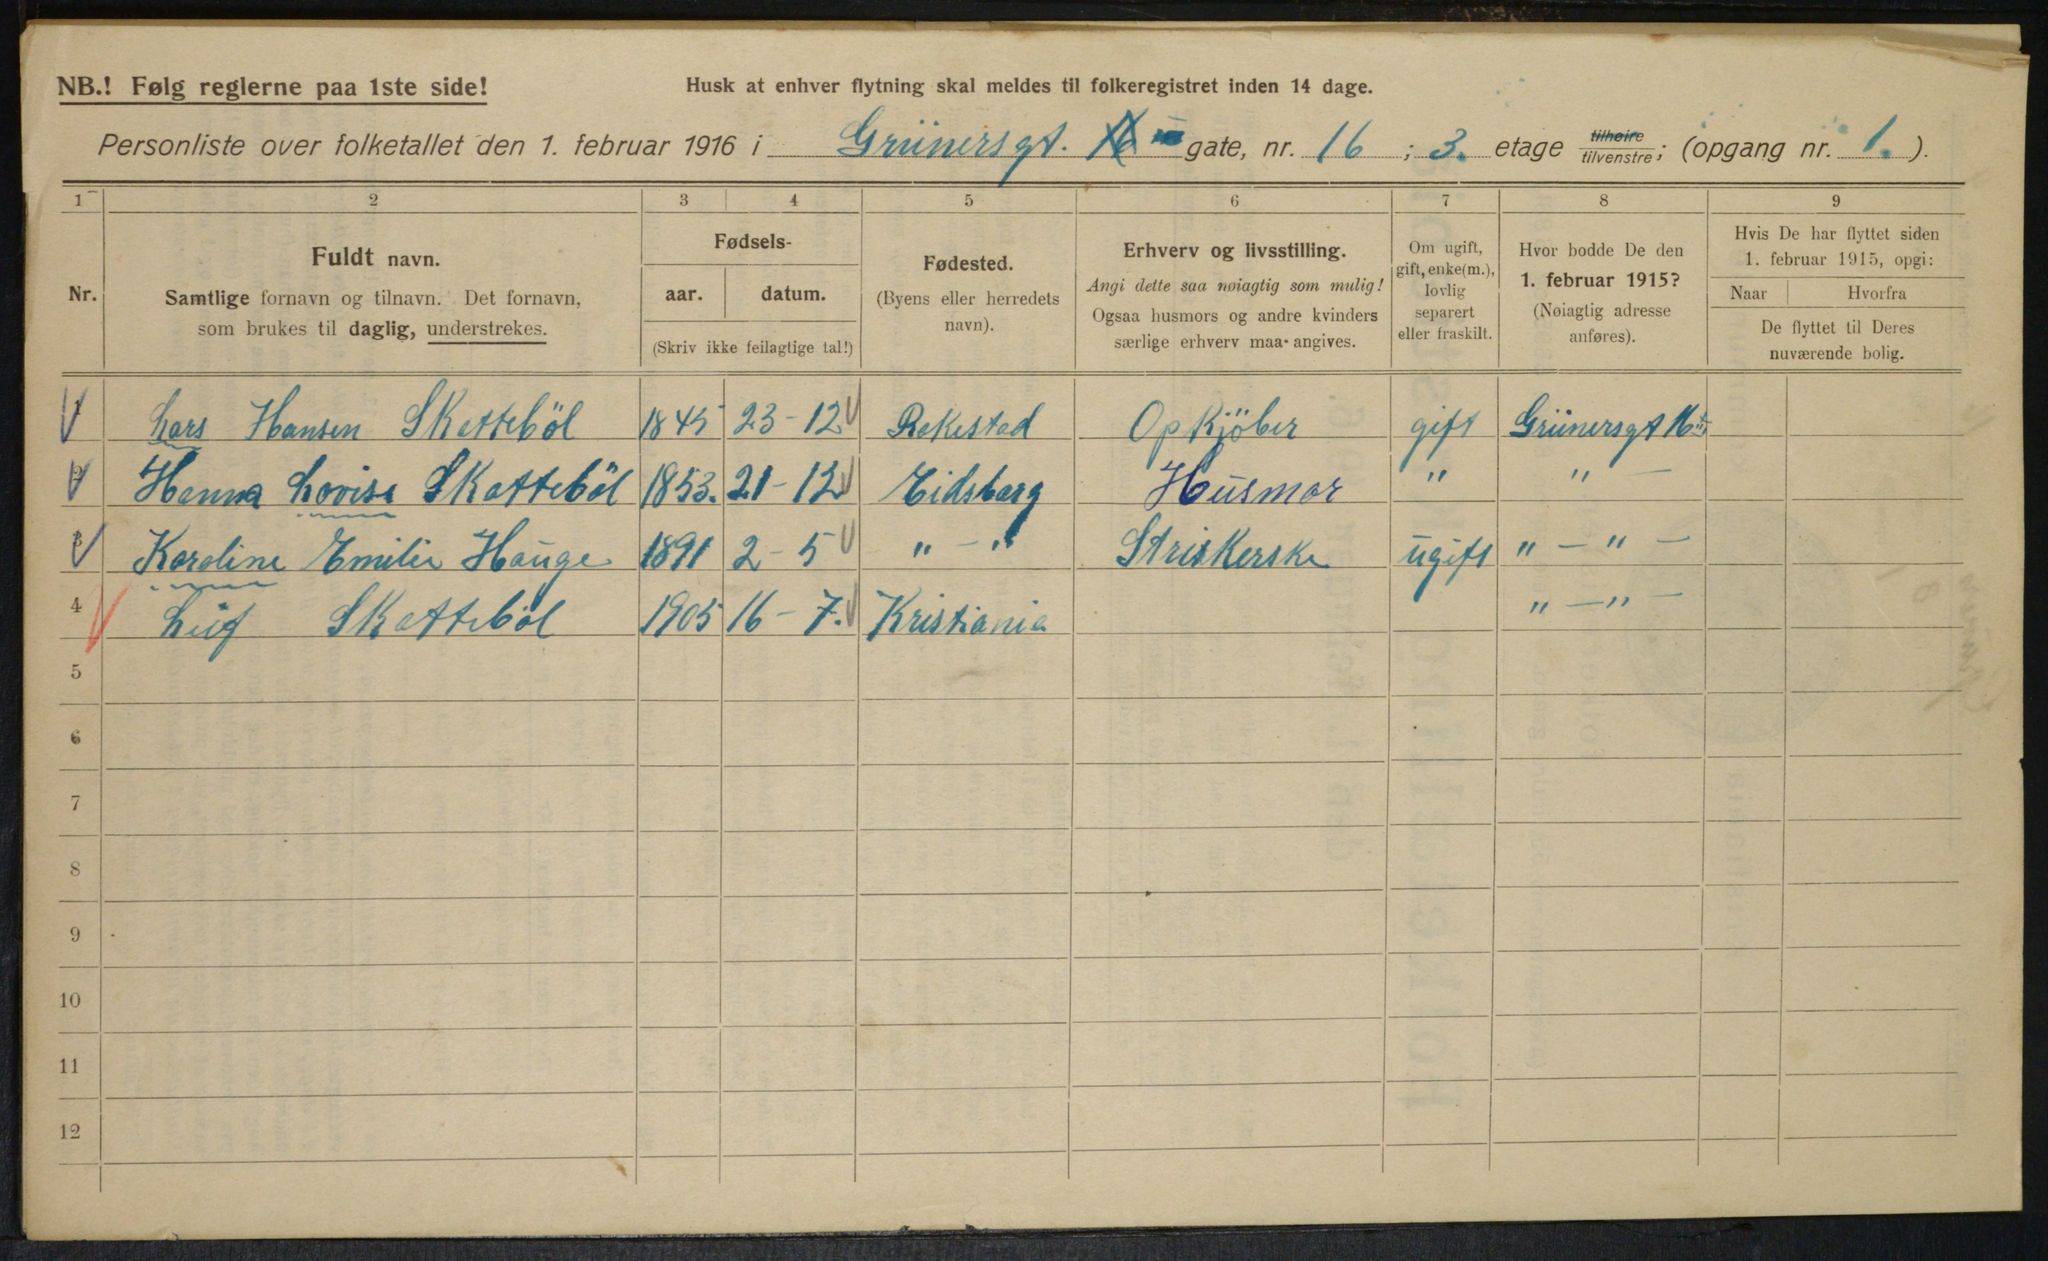 NB.! Følg reglerne paa 1ste side!
Husk at enhver flytning skal meldes til folkeregistret inden 14 dage.
Personliste over folketallet den 1. februar 1916 i Grünersgt. 16 gate, nr. 16; 3. etage tilhøire tilvenstre; (opgang nr. 1.).
1 2 3 4 5 6 7 8 9
Nr.
Fuldt navn.
Samtlige fornavn og tilnavn. Det fornavn,
som brukes til daglig, understrekes.
Fødsels-
aar. datum.
(Skriv ikke feilagtige tal!)
Fødested.
(Byens eller herredets
navn).
Erhverv og livsstilling.
Angi dette saa nøiagtig som mulig!
Ogsaa husmors og andre kvinders
særlige erhverv maa angives.
Om ugift,
gift, enke(m.),
lovlig
separert
eller fraskilt.
Hvor bodde De den
1. februar 1915?
(Nøiagtig adresse
anføres).
Hvis De har flyttet siden
1. februar 1915, opgi:
Naar Hvorfra
De flyttet til Deres
nuværende bolig.
1 Lars Hansen Skattebøl 1845 23-12 Rakestad Opkjöber gift Grünersgt 16
2 Hanna Lovise Skatteböl 1853. 21-12 Eidsberg Husmor " " —
3 Karoline Emilie Hauge 1891 2-5 " — " Striskerske ugift " — " —
4 Leif Skatteböl 1905 16-7. Kristiania " — " —
5
6
7
8
9
10
11
12